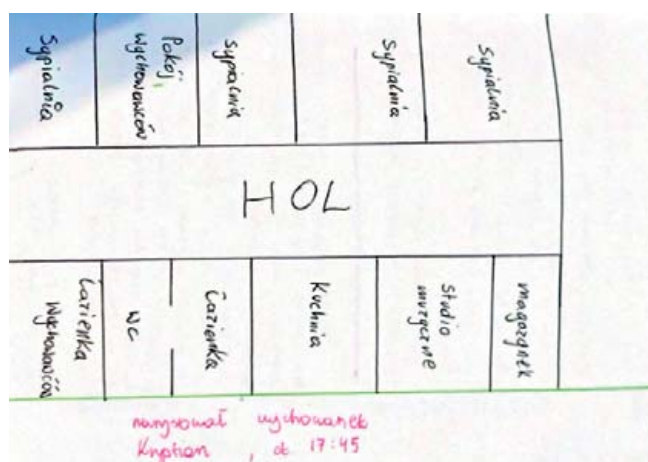 Sypialnia
Pokój
Wychowawców
Sypialnia
Sypialnia
Sypialnia
HOL
Łazienka
Wychowawców
WC
Łazienka
Kuchnia
Studio
muzyczne
magazynek
narysował wychowanek
17:45